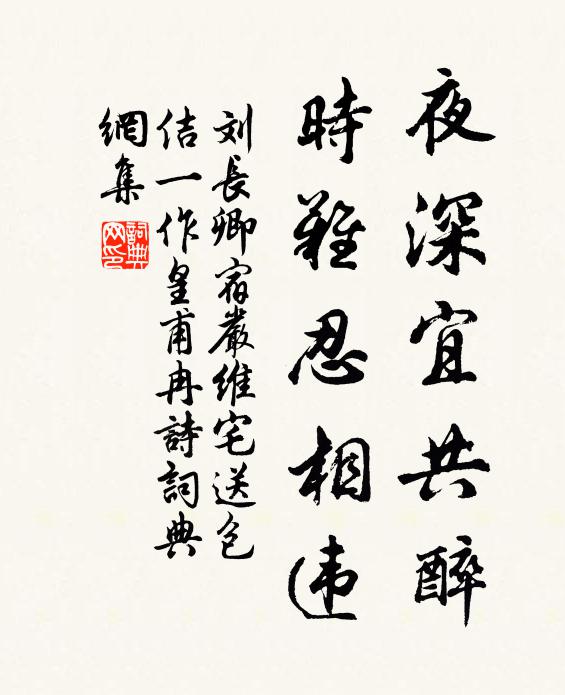 夜深宜共醉
時難忍相违
刘長卿宿嚴維宅送包
佶一作皇甫冉詩詞典
網集
詞典
网印